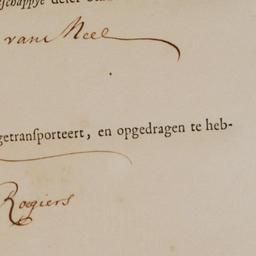 schappye deser Stad
van Meel
getransporteert, en opgedragen te heb-
Rogiers